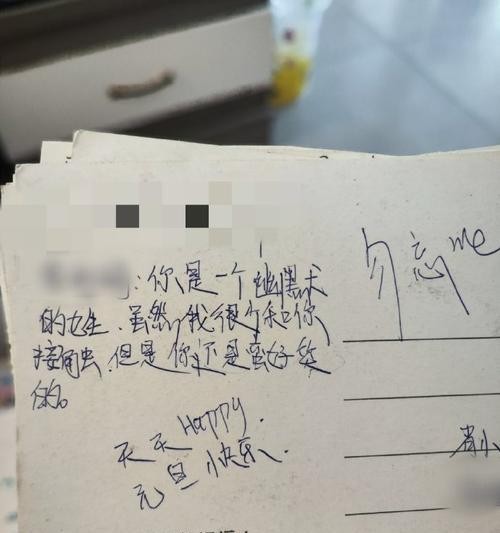 ：你是一个幽默
的女生，虽然我很少和你
接触，但是你还是蛮好
的。
天天Happy.
元旦快乐.
勿忘me
肖小